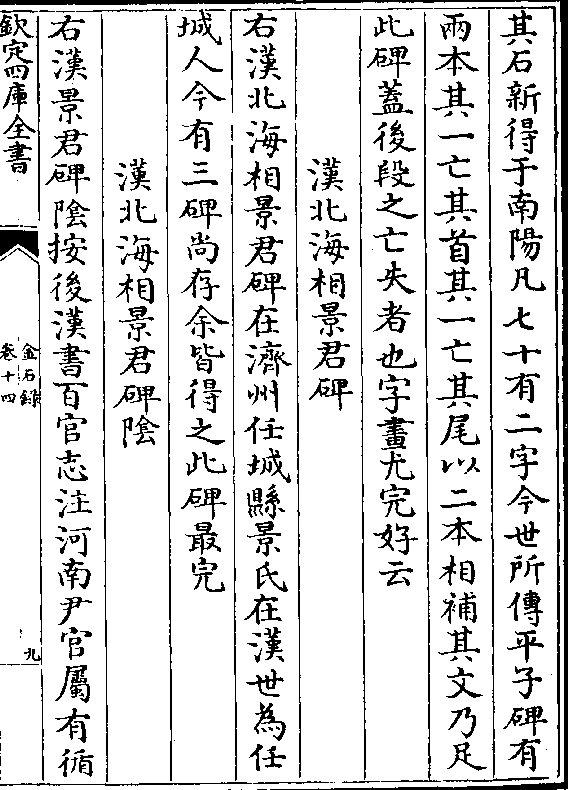 其石新得于南陽凡七十有二字今世所傳平子碑有
兩本其一亡其首其一亡其尾以二本相補其文乃足
此碑蓋後段之亡失者也字畫尤完好云
漢北海相景君碑
右漢北海相景君碑在濟州任城縣景氏在漢世為任
城人今有三碑尚存余皆得之此碑最完
漢北海相景君碑陰
右漢景君碑陰按後漢書百官志注河南尹官屬有循
欽定四庫全書
金石錄
卷十四
九